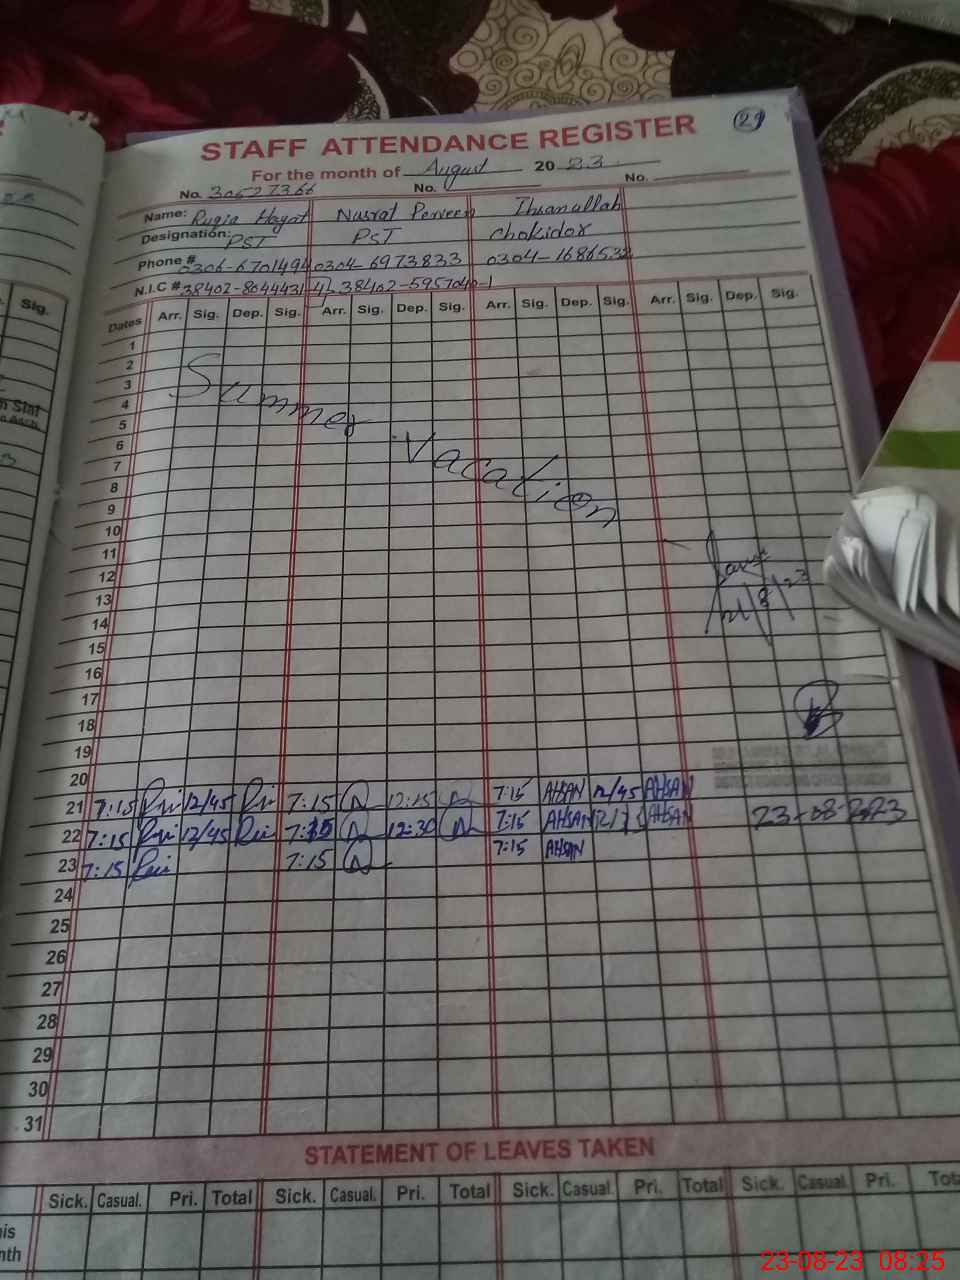 29
STAFF ATTENDANCE REGISTER
For the month of August 2023
No. 30527366 No. No.
Name: Ruqia Hayat Nusrat Perveen Ihsanullah
Designation: PST PST Chokidar
Phone # 0306-6701494 0304-6973833 0304-1686532
N.I.C # 38402-8044431-4 38402-5957040-1
Sig.
Dates Arr. Sig. Dep. Sig. Arr. Sig. Dep. Sig. Arr. Sig. Dep. Sig. Arr. Sig. Dep. Sig.
1
2
3
Summer
4
5
6
Vacation
7
8
9
10
11
12
13
21/8/23
14
15
16
17
18
19
20
21 7:15 12/45 7:15 12:15 7:15 AHSAN 12/45 AHSAN
22 7:15 12/45 7:15 12:30 7:15 AHSAN AHSAN 23-08-2023
23 7:15 7:15 7:15 AHSAN
24
25
26
27
28
29
30
31
STATEMENT OF LEAVES TAKEN
Sick. Casual. Pri. Total Sick. Casual. Pri. Total Sick. Casual. Pri. Total Sick. Casual. Pri.
23-08-23 08:25